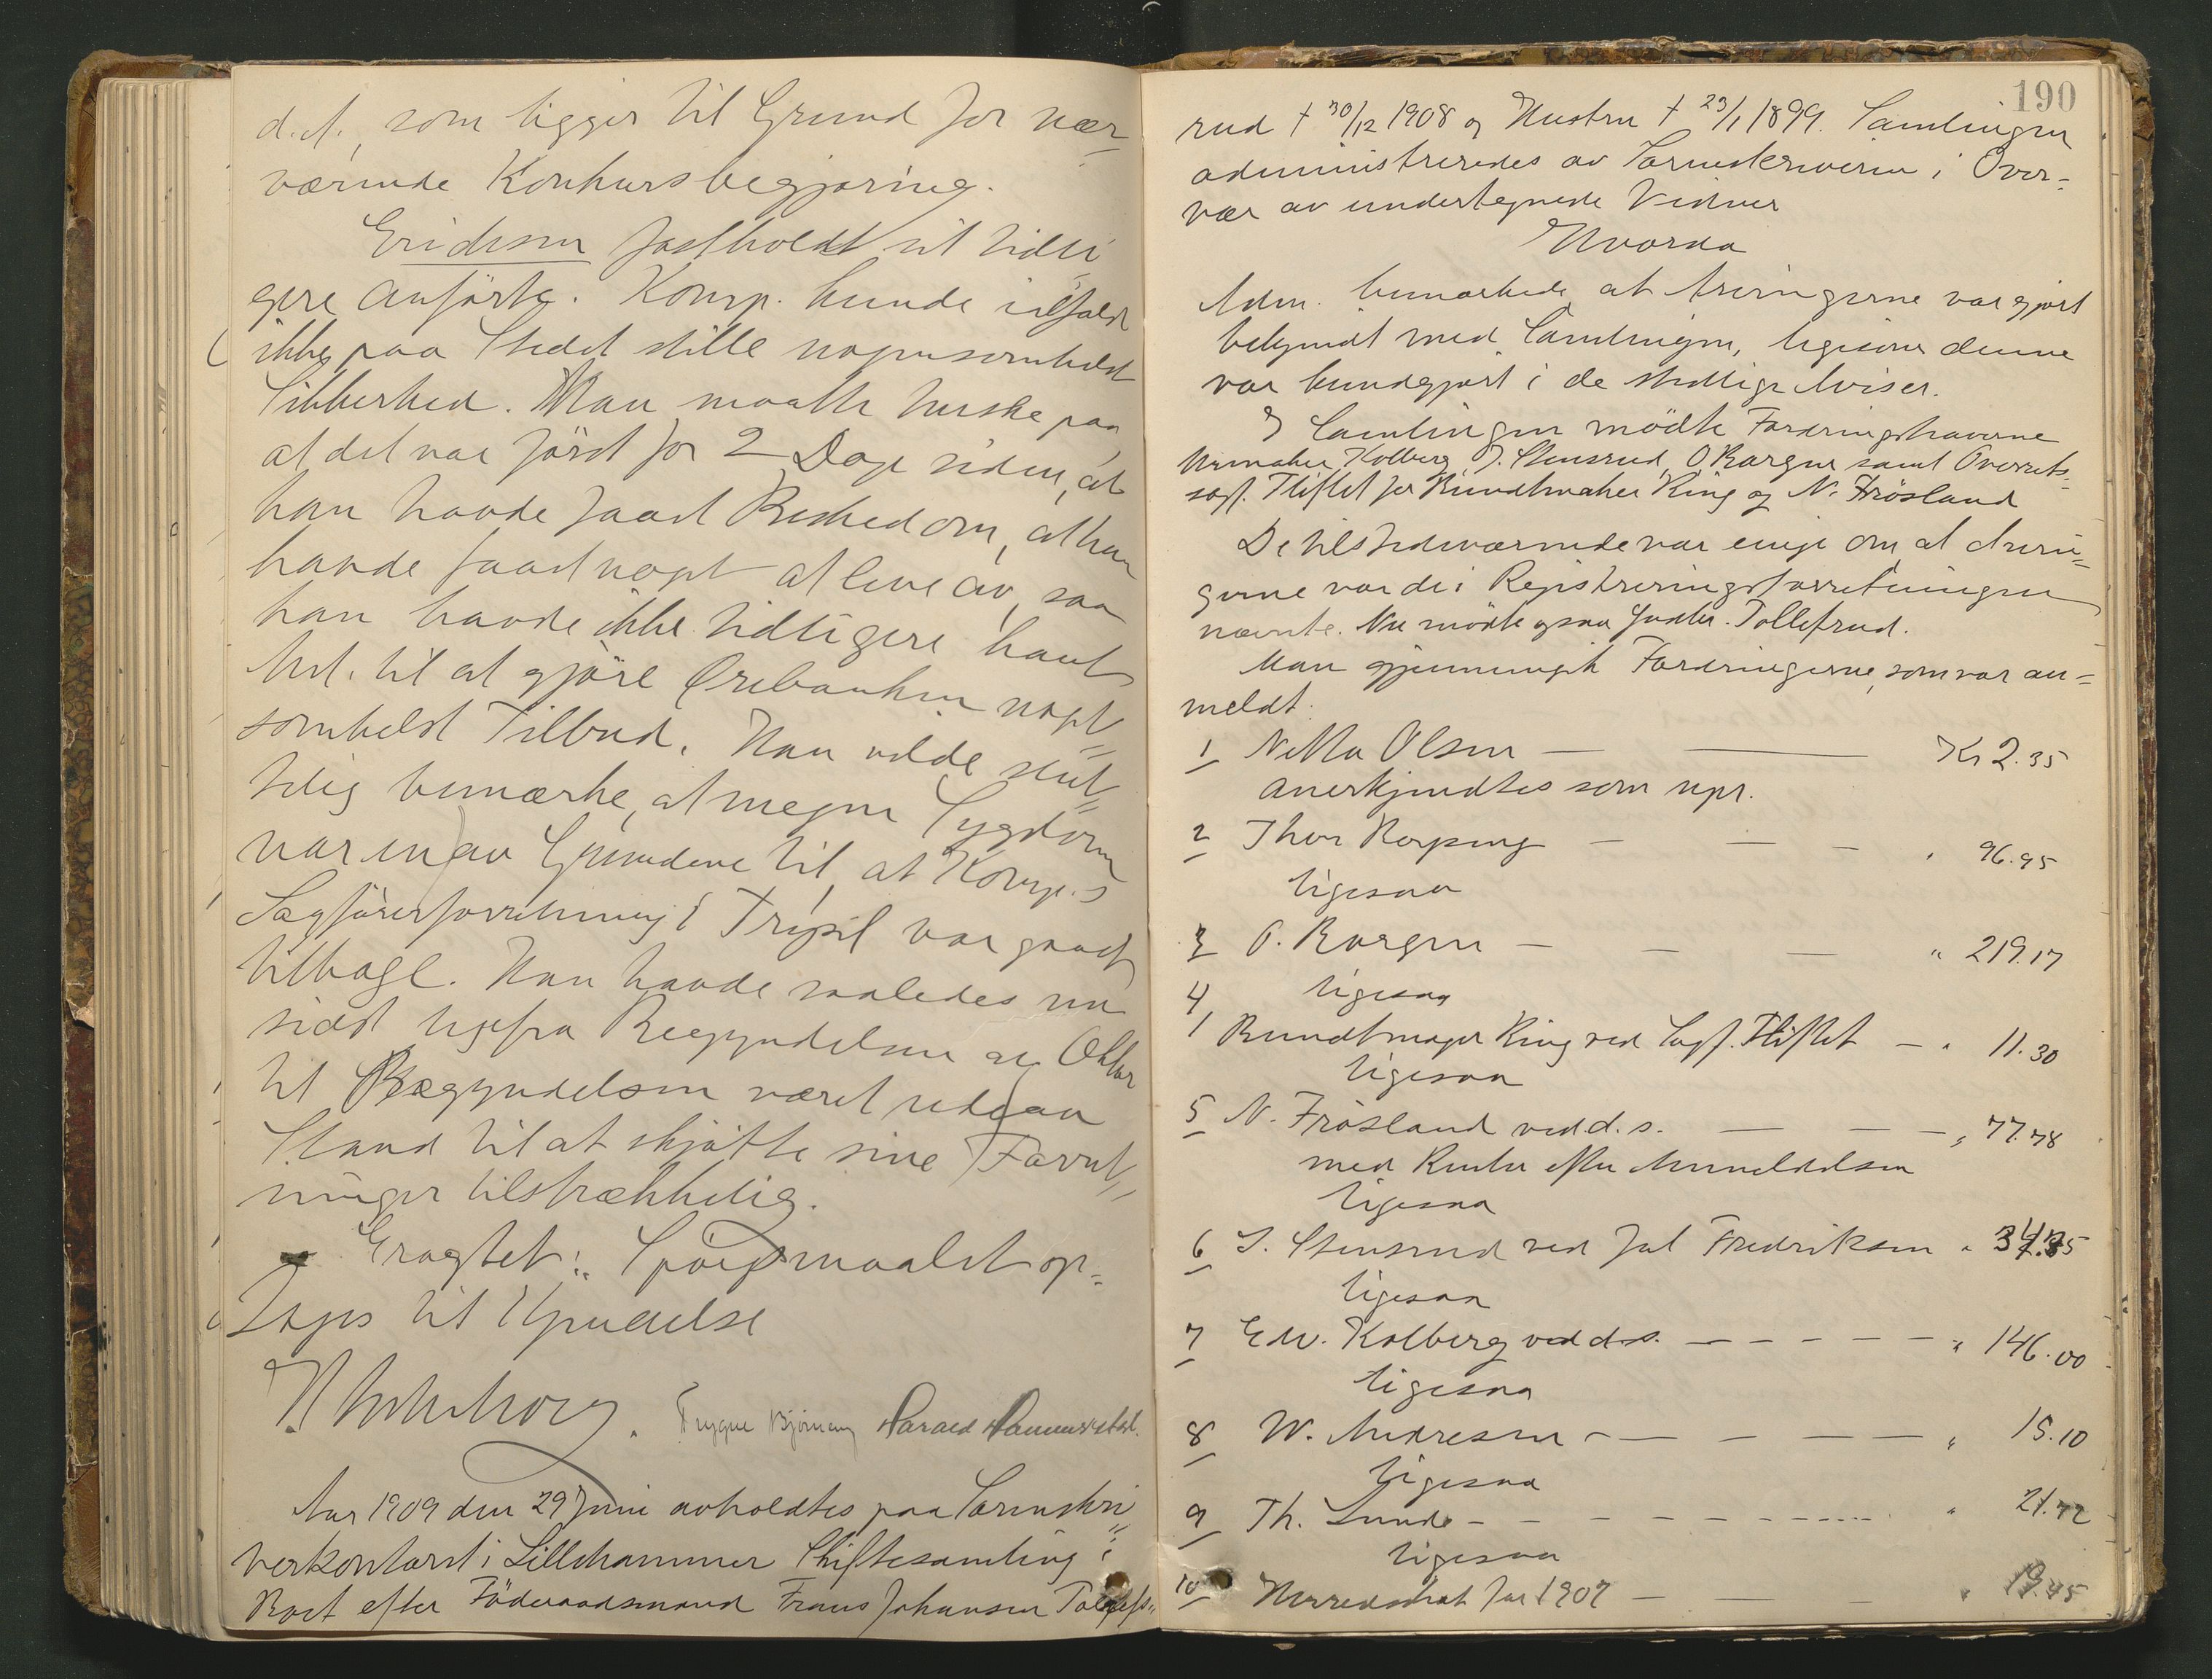 d.d., som ligger til Grund for nær-
værende Konkursbegjæring.
Eriksen fastholdt sit tidli-
gere anførte. Komp. kunde ialfald
ikke paa Stedet stille nogensomhelst
Sikkerhed. Man maatte huske paa,
at det var først for 2 Dage siden, at
han havde faaet Besked om, at han
havde faaet noget at leve av, saa
han havde ikke tidligere havt
Anl. til at gjøre Orebanken noget-
somhelst Tilbud. Han vilde slut-
telig bemærke, at megen Sygdom
var en av Grundene til, at Komp.s
Sagførerforretning i Trysil var gaaet
tilbage. Han havde saaledes nu
sidst ligefra Begyndelsen av Oktbr
til Begyndelsen været ude av
Stand til at skjøtte sine Forret-
ninger tilstrækkelig.
Eragtet: Spørgsmaalet op-
tages til Kjendelse
Trygve Bjørneng Harald Hammerstad.
Aar 1909 den 29 Juni avholdtes paa Sorenskri-
verkontoret i Lillehammer Skiftesamling i
Boet efter Föderaadsmand Frans Johansen Tollefs-
190
rud † 30/12 1908 og Hustru † 23/1 1899. Samlingen
administreredes av Sorenskriveren i Over-
vær av undertegnede Vidner
Hvorda
Adm. bemærkede, at Arvingerne var gjort
bekjendt med Samlingen, ligesom denne
var kundgjort i de stedlige Aviser.
I Samlingen mödte Fordringshaverne
Urmaker Kolberg, J. Stensrud, O. Bargen samt Overrets-
sagf. Fliflet for Bundtmaker Ring og N. Frösland
De tilstedeværende var enige om at Arvin-
gerne var de i Registreringsforretningen
nævnte. Nu mödte ogsaa Gudbr. Tollefsrud.
Man gjennemgik Fordringerne, som var an-
meldt:
1 Netta Olsen — — Kr 2.35
anerkjendtes som upr.
2 Thor — — — " 96.95
ligesaa
3 O. Bargen — — — " 219.17
ligesaa
4 Bundtmager Ring ved Sagf. Fliflet — " 11.30
ligesaa
5 N. Frösland ved d.s. — — — " 77.78
med Renter efter Anmeldelsen
ligesaa
6 J. Stensrud ved Jul Fredriksen "
ligesaa
7 Edv. Kolberg ved d.s. — — — — — " 146.00
ligesaa
8 W. Andresen — — — — — " 15.10
ligesaa
9 Th. Lunde — — — — — " 21.72
ligesaa
10 Herredsskat for 1907 — — "